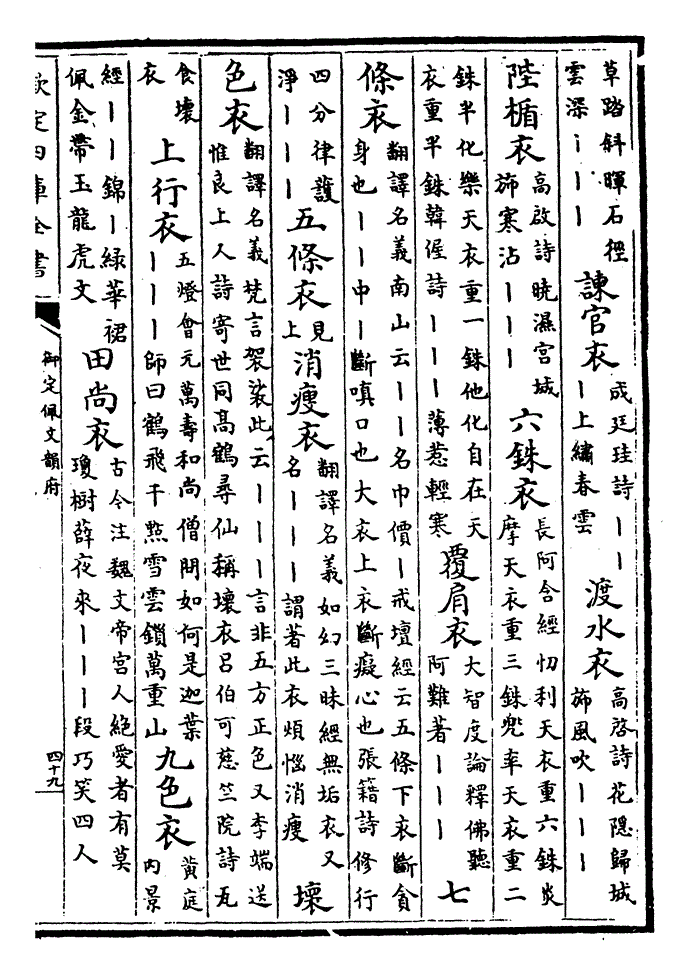 草路斜暉石徑雲深丨丨丨 諫官衣 成廷珪詩丨丨丨上繡春雲 渡水衣 高啓詩花隱歸城旆風吹丨丨丨
陛楯衣 高啟詩曉濕宮城旆寒沾丨丨丨 六銖衣 長阿含經忉利天衣重六銖炎摩天衣重三銖兜率天衣重二
銖半化樂天衣重一銖他化自在天衣重半銖韓偓詩丨丨丨薄惹輕寒 覆肩衣 大智度論釋佛聽阿難著丨丨丨 七
條衣 翻譯名義南山云丨丨名巾價丨戒壇經云五條下衣斷貪身也丨丨中丨斷嗔口也大衣上衣斷癡心也張籍詩修行
四分律護淨丨丨丨 五條衣 見上 消瘦衣 翻譯名義如幻三昧經無垢衣又名丨丨丨謂著此衣煩惱消瘦 壞
色衣 翻譯名義梵言袈裟此云丨丨丨言非五方正色又李端送惟良上人詩寄世同高鶴尋仙稱壞衣呂伯可慈竺院詩瓦
食壞衣 上行衣 五燈會元萬壽和尚僧問如何是迦葉丨丨丨師曰鶴飛千點雪雲鎖萬重山 九色衣 黃庭內景
經丨丨錦丨綠華裙佩金帶玉龍虎文 田尚衣 古今注魏文帝宮人絕愛者有莫瓊樹薛夜來丨丨丨段巧笑四人
欽定四庫全書
御定佩文韻府
四十九